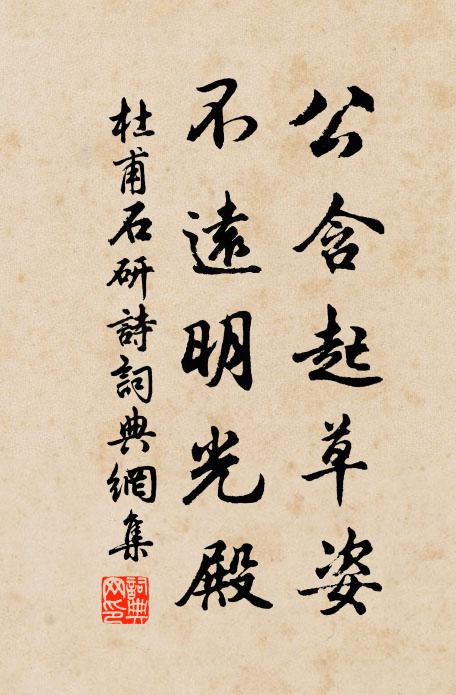 公含起草姿
不遠明光殿
杜甫石研詩詞典網集
詞典
网印